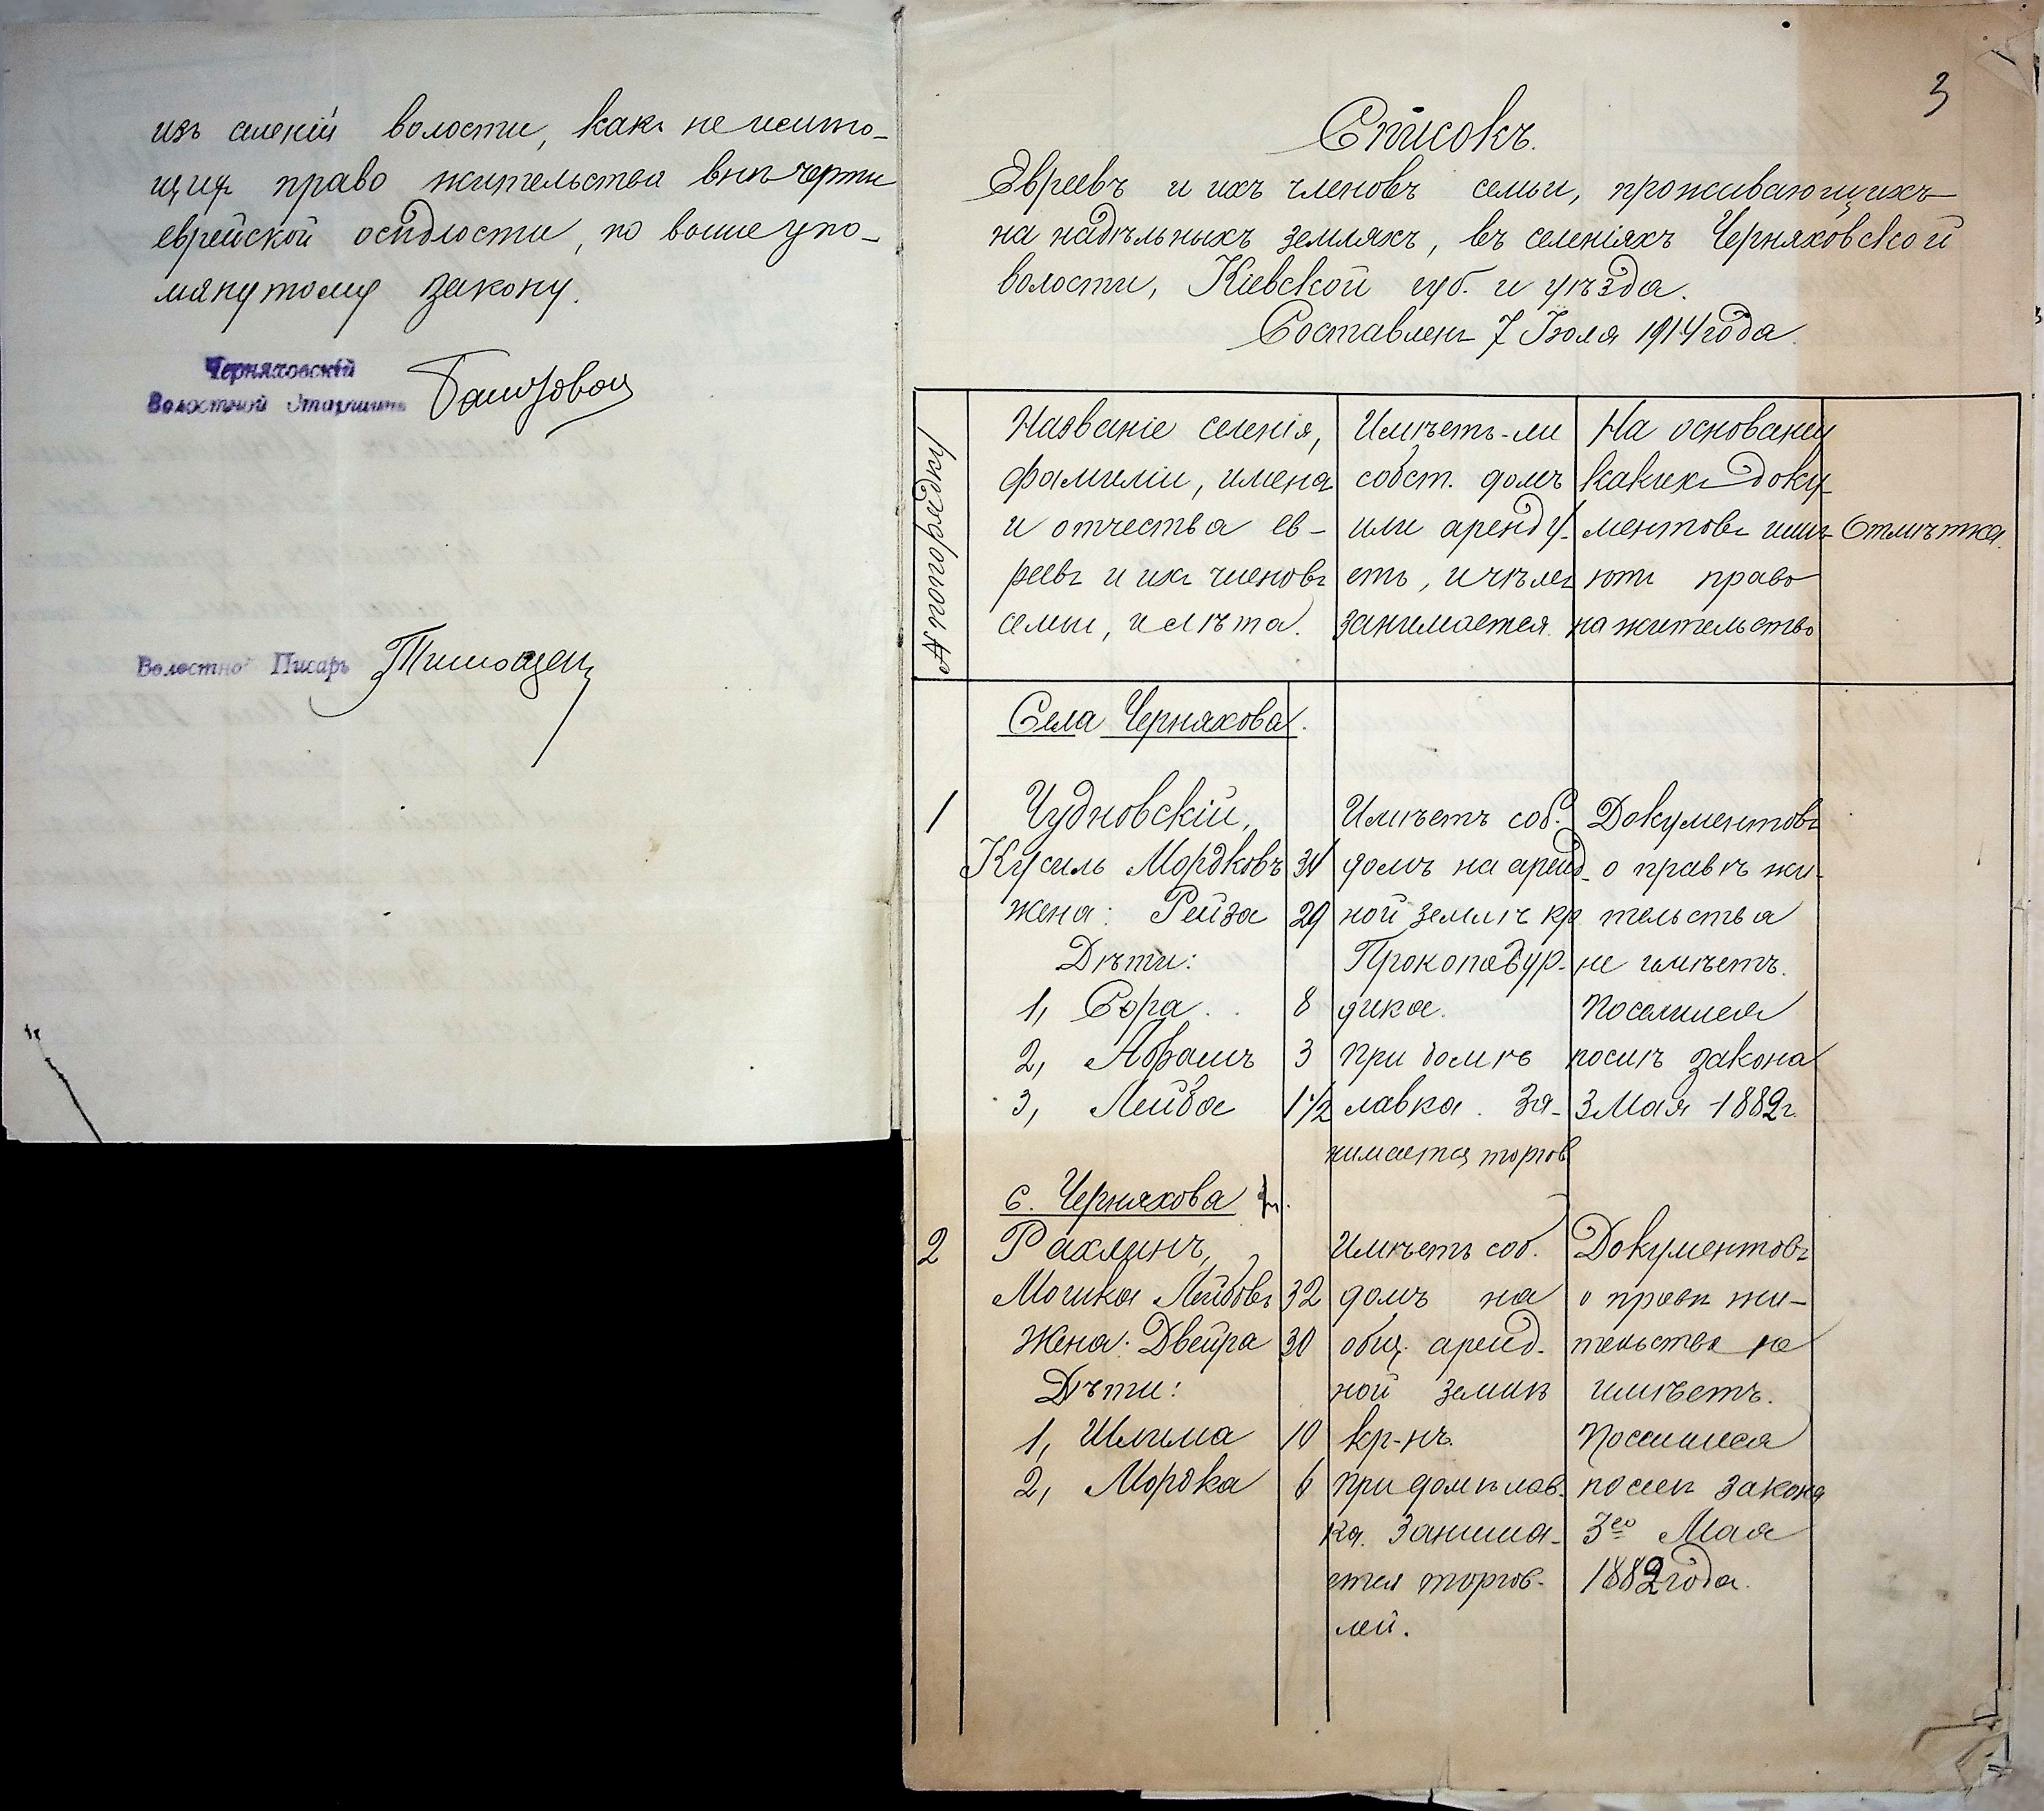 изъ селенiй волости, какъ не имѣю-
щия право жительства внѣ черты
еврейской осѣдлости, по выше упо-
мянутому закону.
Черняховскiй
Волостной Старшина
Волостной Писарь
3
Списокъ.
Евреевъ и ихъ членовъ семьи, проживающихъ
на надѣльныхъ земляхъ, въ селенiяхъ Черняховской
волости, Кiевской губ. и уѣзда.
Составленъ 7 Iюля 1914 года.
№ по порядку
Названiе селенiя,
фамилiи, имена
и отчества ев-
реевъ и ихъ членовъ
семьи, и лѣта.
Имѣетъ-ли
собст. домъ
или аренду-
етъ, и чѣмъ
занимается.
На основанiи
какихъ доку-
ментовъ имѣ-
ютъ право
на жительство
Отмѣтка.
Села Черняхова.
1
Чудновскiй,
Кусиль Мордковъ 31
жена: Рейза 29
Дѣти:
1, Сора . . 8
2, Абрамъ 3
3, Лейба 1 1/2
Имѣетъ соб.
домъ на аренд-
ной землѣ кр
Прокопа Бур-
дика.
При домѣ
лавка. За-
нимается торгов
Документовъ
о правѣ жи-
тельства
не имѣетъ.
Поселился
послѣ закона
3 Мая 1882 г.
с. Черняхова
2
Рахлинъ,
Мошка Лейбовъ 32
Жена: Двейра 30
Дѣти:
1, Шлима 10
2, Мордка 6
Имѣетъ соб.
домъ на
общ. аренд-
ной землѣ
кр-нъ.
При домѣ лав-
ка. Занима-
ется торгов-
лей.
Документовъ
о правѣ жи-
тельства не
имѣетъ.
Поселился
послѣ закона
3го Мая
1882 года.